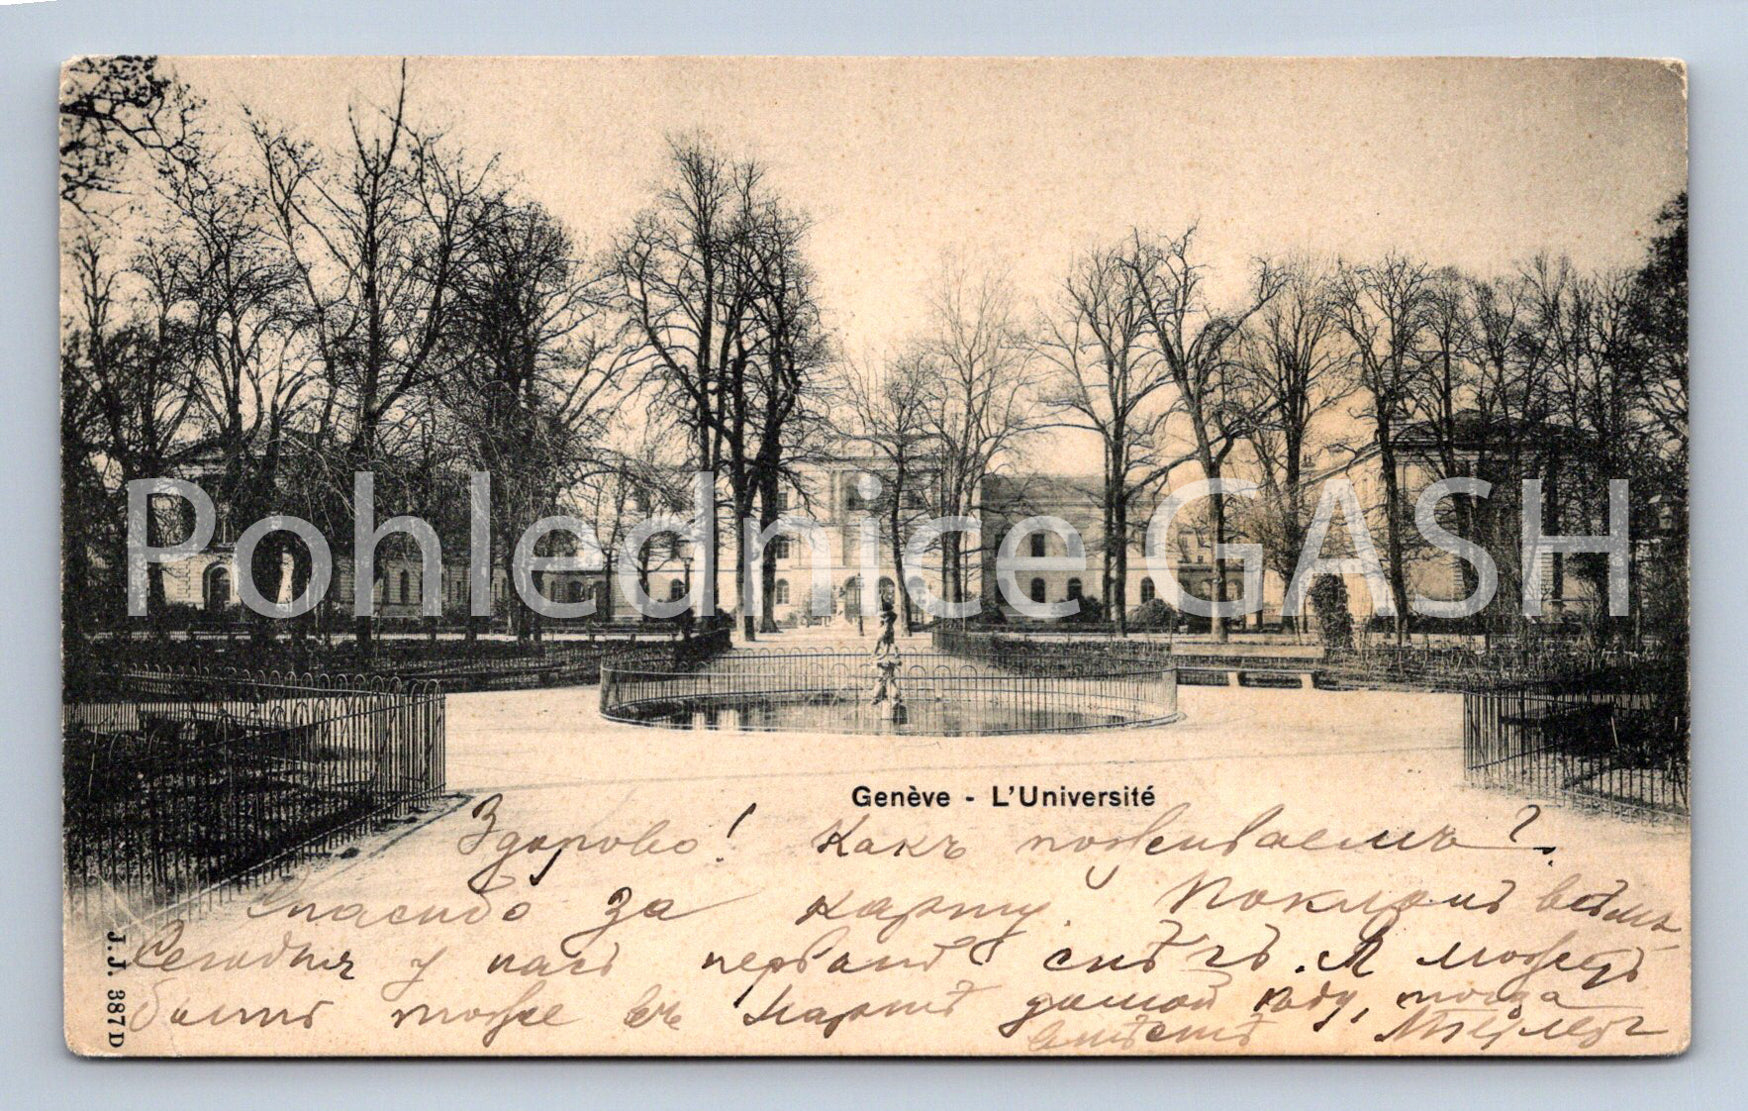 Pohlednice GASH
Genève - L'Université
Здорово! Какъ поживаешь?
Спасибо за карту. Поклонъ всѣмъ
Сегодня у насъ первый снѣгъ. Я можетъ
быть тоже въ Мартѣ домой поѣду, тогда
вмѣстѣ
J. J. 387 D